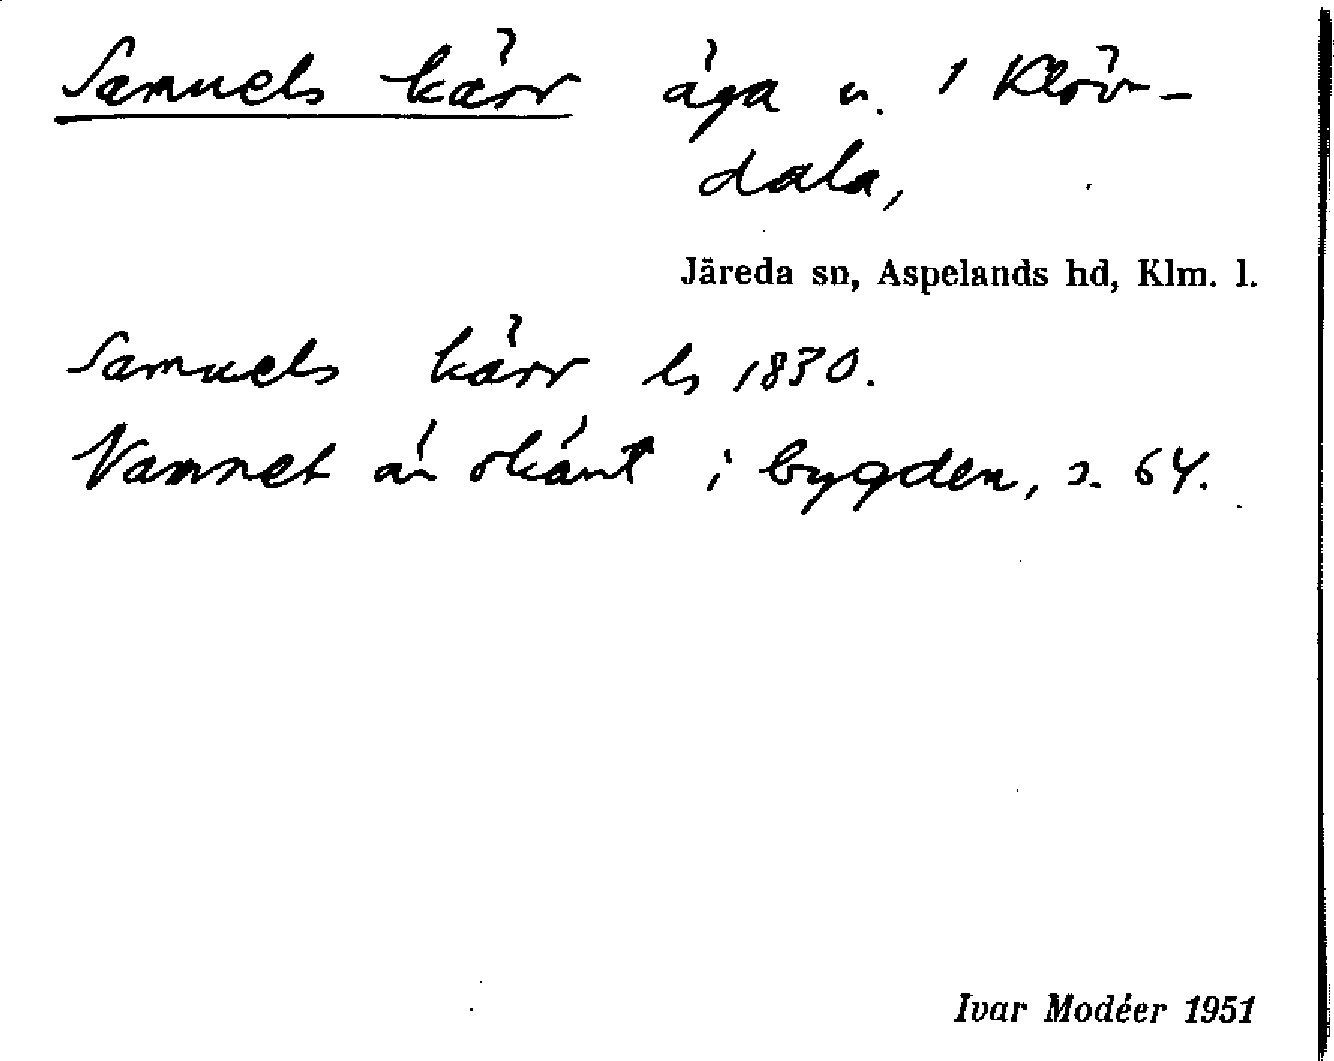 Samuels kärr äga u. 1 Klöv-
dala,
Järeda sn, Aspelands hd, Klm. l.
Samuels kärr ls 1830.
Namnet är okänt i bygden, s. 64.
Ivar Modéer 1951